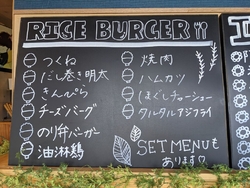 RICE BURGER
つくね
だし巻き明太
きんぴら
チーズバーグ
のり弁バーガー
油淋鶏
焼肉
ハムカツ
まぐしチャーシュー
タルタルアジフライ
SET MENUも
あります♡